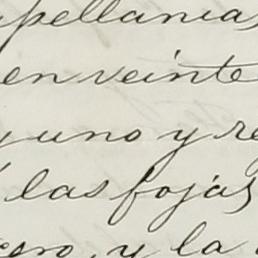 pellanias
en veinte
y uno y re
las fojas
cero, y la